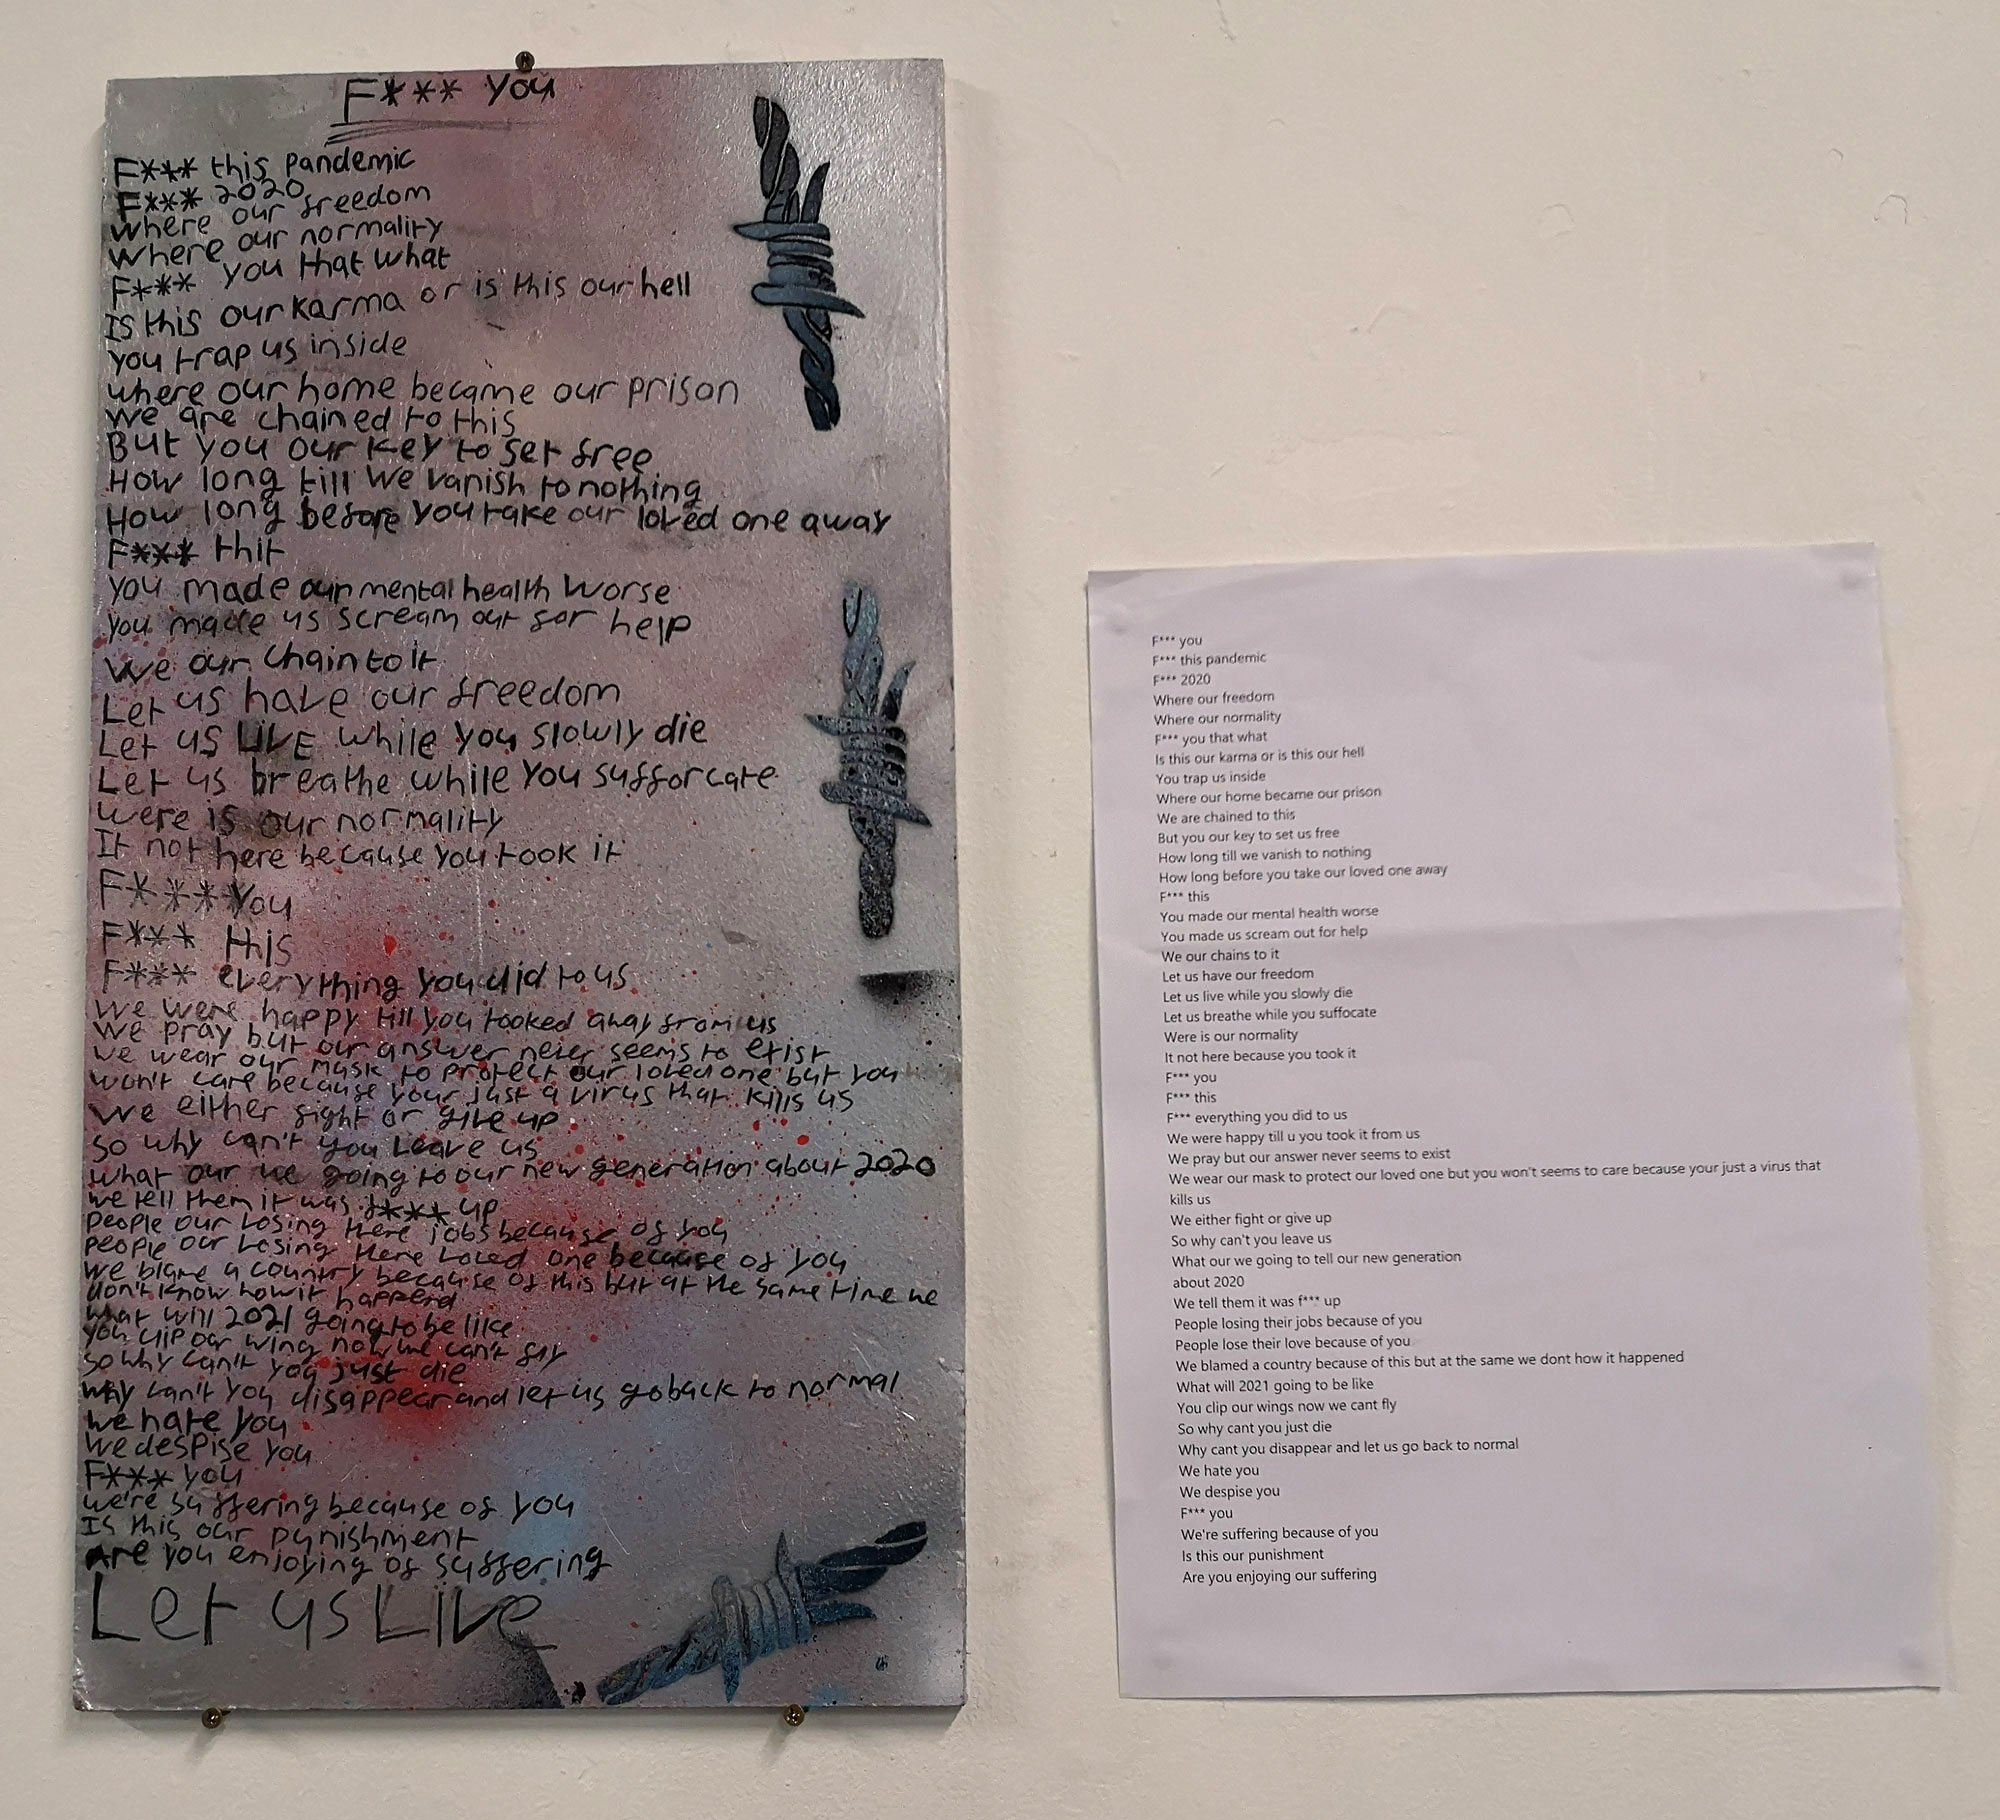 F*** you
F*** this pandemic
F*** 2020
where our freedom
where our normality
F*** you that what
Is this our karma or is this our hell
you trap us inside
where our home became our prison
we are chained to this
But you our key to set free
How long till we vanish to nothing
How long before you take our loved one away
F*** thit
you made our mental health worse
you made us scream out for help
we our chain to it
Let us have our freedom
Let us LIVE while you slowly die
Let us breathe while you sufforcate
were is our normality
It not here because you took it
F****you
F*** this
F*** everything you did to us
we were happy till you tooked away from us
we pray but our answer never seems to exist
we wear our mask to protect our loved one but you
won't care because your just a virus that kills us
we either fight or give up
so why can't you leave us
what our we going to our new generation about 2020
we tell them it was f*** up
people our losing there jobs because of you
people our losing there loved one because of you
we blame a country because of this but at the same time we
don't know how it happend
what will 2021 going to be like
you clip our wing now we can't fly
so why can't you just die
why can't you disappear and let us go back to normal
we hate you
we despise you
F*** you
we're suffering because of you
Is this our punishment
Are you enjoying of suffering
Let us Live
F*** you
F*** this pandemic
F*** 2020
Where our freedom
Where our normality
F*** you that what
Is this our karma or is this our hell
You trap us inside
Where our home became our prison
We are chained to this
But you our key to set us free
How long till we vanish to nothing
How long before you take our loved one away
F*** this
You made our mental health worse
You made us scream out for help
We our chains to it
Let us have our freedom
Let us live while you slowly die
Let us breathe while you suffocate
Were is our normality
It not here because you took it
F*** you
F*** this
F*** everything you did to us
We were happy till u you took it from us
We pray but our answer never seems to exist
We wear our mask to protect our loved one but you won't seems to care because your just a virus that
kills us
We either fight or give up
So why can't you leave us
What our we going to tell our new generation
about 2020
We tell them it was f*** up
People losing their jobs because of you
People lose their love because of you
We blamed a country because of this but at the same we dont how it happened
What will 2021 going to be like
You clip our wings now we cant fly
So why cant you just die
Why cant you disappear and let us go back to normal
We hate you
We despise you
F*** you
We're suffering because of you
Is this our punishment
Are you enjoying our suffering